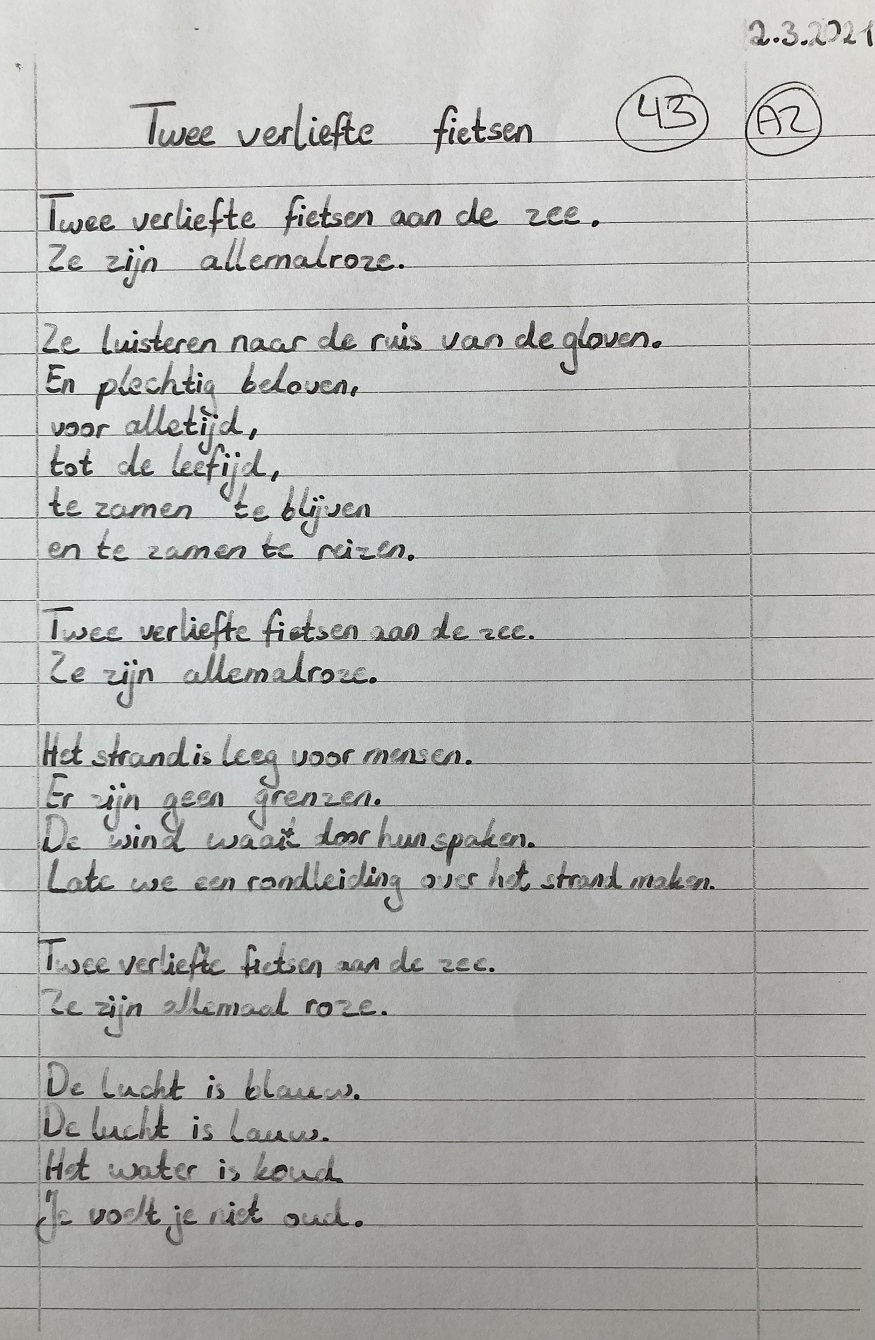 2.3.2021
Twee verliefte fietsen 43 A2
Twee verliefte fietsen aan de zee.
Ze zijn allemalroze.
Ze luisteren naar de ruis van de gloven.
En plechtig beloven,
voor alletijd,
tot de leefijd,
te zamen te blijven
en te zamen te reizen.
Twee verliefte fietsen aan de zee.
Ze zijn allemalroze.
Het strand is leeg voor mensen.
Er zijn geen grenzen.
De wind waait door hun spaken.
Late we een rondleiding over het strand maken.
Twee verliefte fietsen aan de zee.
Ze zijn allemaal roze.
De lucht is blauw.
De lucht is lauw.
Het water is koud.
Je voelt je niet oud.